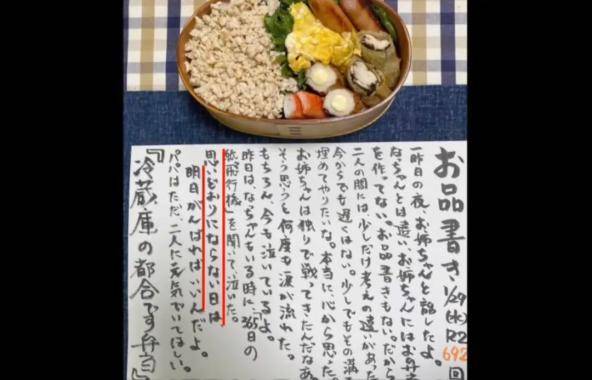 お品書き 1/29(水)R2 692回
一昨日の夜、お姉ちゃんと話したよ。
なっちゃんとは違い、お姉ちゃんにはお弁当
を作ってない。お品書きもない。だから
二人の間には、少しだけ考えの違いがあった
今からでも遅くはない。少しでもその溝
埋めてやりたいな。本当に、心から思った。
お姉ちゃんは独りで戦ってきたんだなあ。
そう思うと何度も涙が流れた。
もちろん、今も泣いているよ。
昨日は、なっちゃんもいる時に「365日の
紙飛行機」を聞いて、泣いた。
思いどおりにならない日は
明日がんばればいいんだよ。
パパはただ、二人に元気でいてほしい。
『冷蔵庫の都合です弁当』